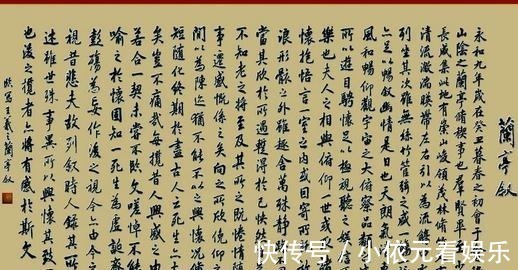 蘭亭叙
永和九年歲在癸丑暮春之初會于
山陰之蘭亭脩禊事也群賢畢
長咸集此地有崇山峻領茂林脩
清流激湍映帶左右引以為流觴
列坐其次雖無絲竹管絃之盛
亦足以暢叙幽情是日也天朗氣
風和暢仰觀宇宙之大俯察品類
所以遊目騁懷足以極視聽之娛
樂也夫人之相與俯仰一世或
懷抱悟言一室之內或因寄所
浪形骸之外雖趣舍萬殊靜
當其欣於所遇蹔得於己怏然
不知老之將至及其所之既惓情
事遷感慨係之矣向之所欣俛仰
間以為陳迹猶不能不以之興懷況脩
短隨化終期於盡古人云死生
矣豈不痛哉每攬昔人興感之由
若合一契未嘗不臨文嗟悼不能
喻之於懷固知一死生為虛誕齊
彭殤為妄作後之視今亦由今之
視昔悲夫故列叙時人錄其所
述雖世殊事異所以興懷其致一
也後之攬者亦將有感於斯文
臨寫王羲之蘭亭叙
快传号／小依元看娱乐